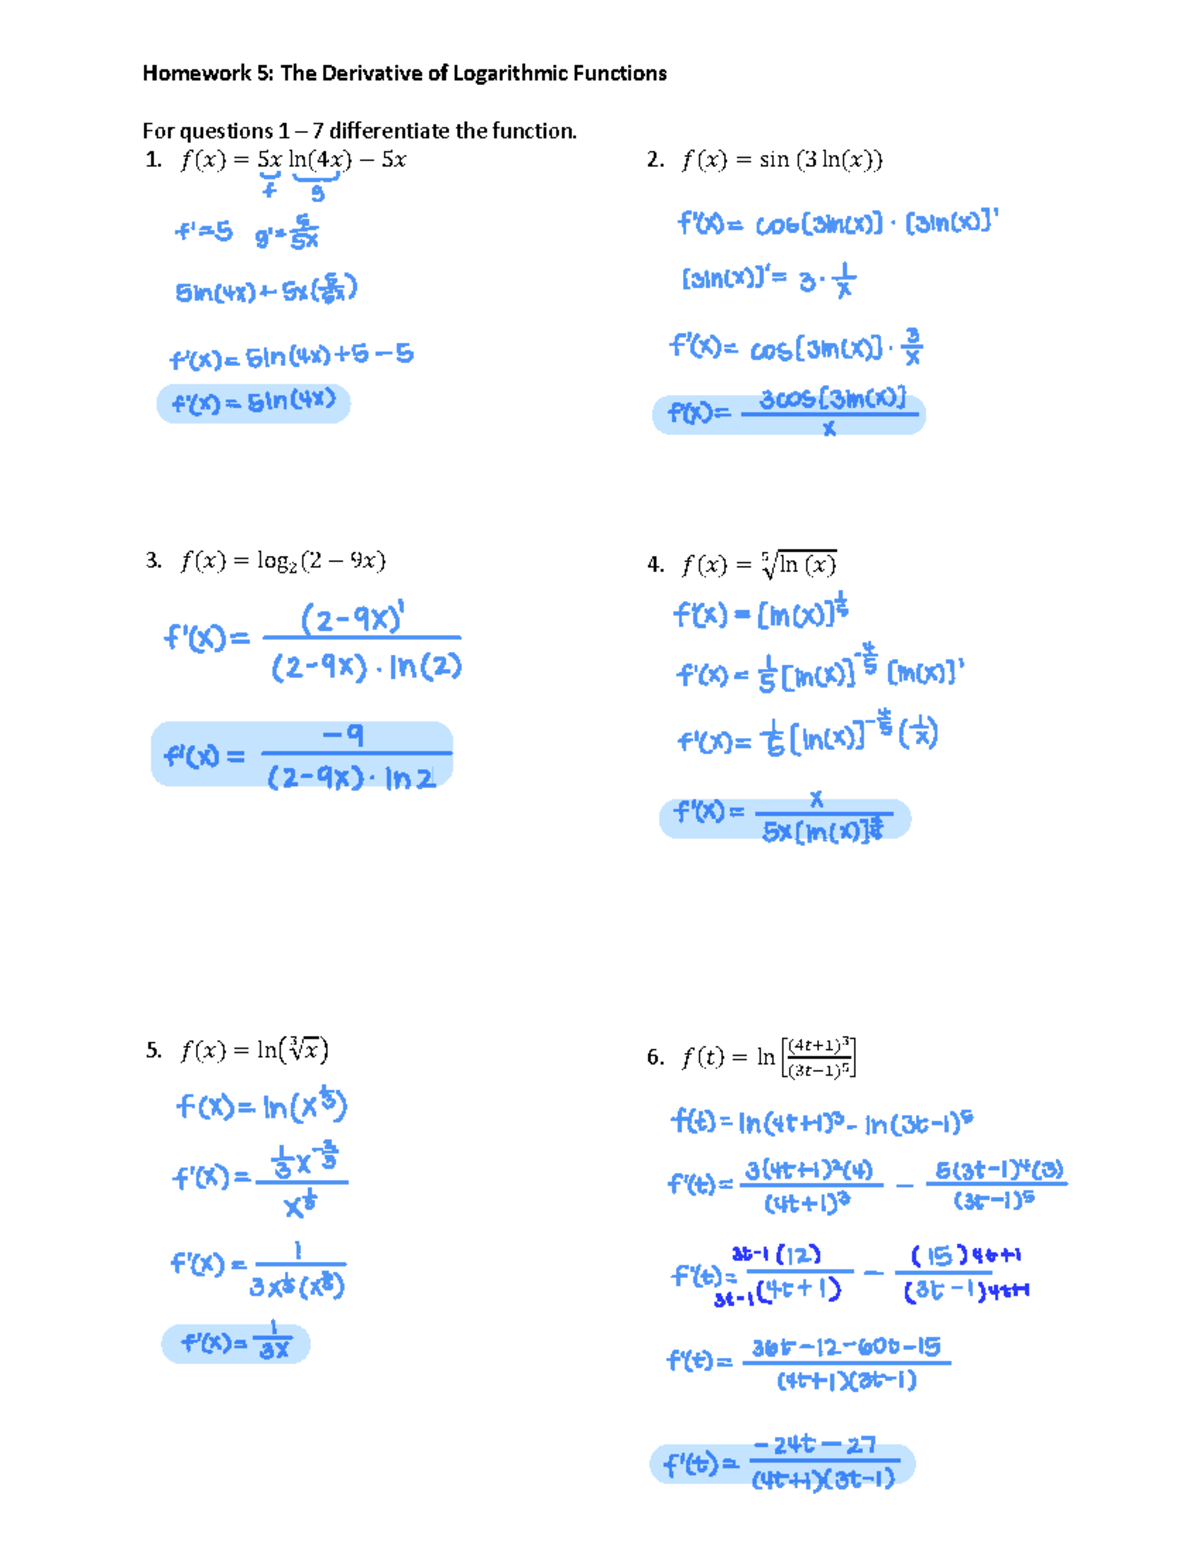 Homework 5: The Derivative of Logarithmic Functions
For questions 1 – 7 differentiate the function.
1. f(x) = 5x ln(4x) − 5x
f g
f' = 5 g' = 5/5x
5ln(4x) + 5x(5/5x)
f'(x) = 5ln(4x) + 5 − 5
f'(x) = 5ln(4x)
2. f(x) = sin (3 ln(x))
f'(x) = cos[3ln(x)] · [3ln(x)]'
[3ln(x)]' = 3 · 1/x
f'(x) = cos[3ln(x)] · 3/x
f'(x) = 3cos[3ln(x)]/x
3. f(x) = log₂(2 − 9x)
f'(x) = (2-9x)'/(2-9x) · ln(2)
f'(x) = -9/(2-9x) · ln2
4. f(x) = ⁵√ln (x)
f'(x) = [ln(x)]^1/5
f'(x) = 1/5 [ln(x)]^-4/5 [ln(x)]'
f'(x) = 1/5 [ln(x)]^-4/5 (1/x)
f'(x) = x/5x[ln(x)]^4/5
5. f(x) = ln(³√x)
f(x) = ln(x^1/3)
f'(x) = 1/3 x^-2/3 / x^1/3
f'(x) = 1/3x^1/3(x^2/3)
f'(x) = 1/3x
6. f(t) = ln [(4t+1)³/(3t−1)⁵]
f(t) = ln(4t+1)³ - ln(3t-1)⁵
f'(t) = 3(4t+1)²(4)/(4t+1)³ − 5(3t-1)⁴(3)/(3t-1)⁵
f'(t) = 3t-1(12)/3t-1(4t+1) − (15)4t+1/(3t-1)4t+1
f'(t) = 36t-12-60t-15/(4t+1)(3t-1)
f'(t) = -24t-27/(4t+1)(3t-1)